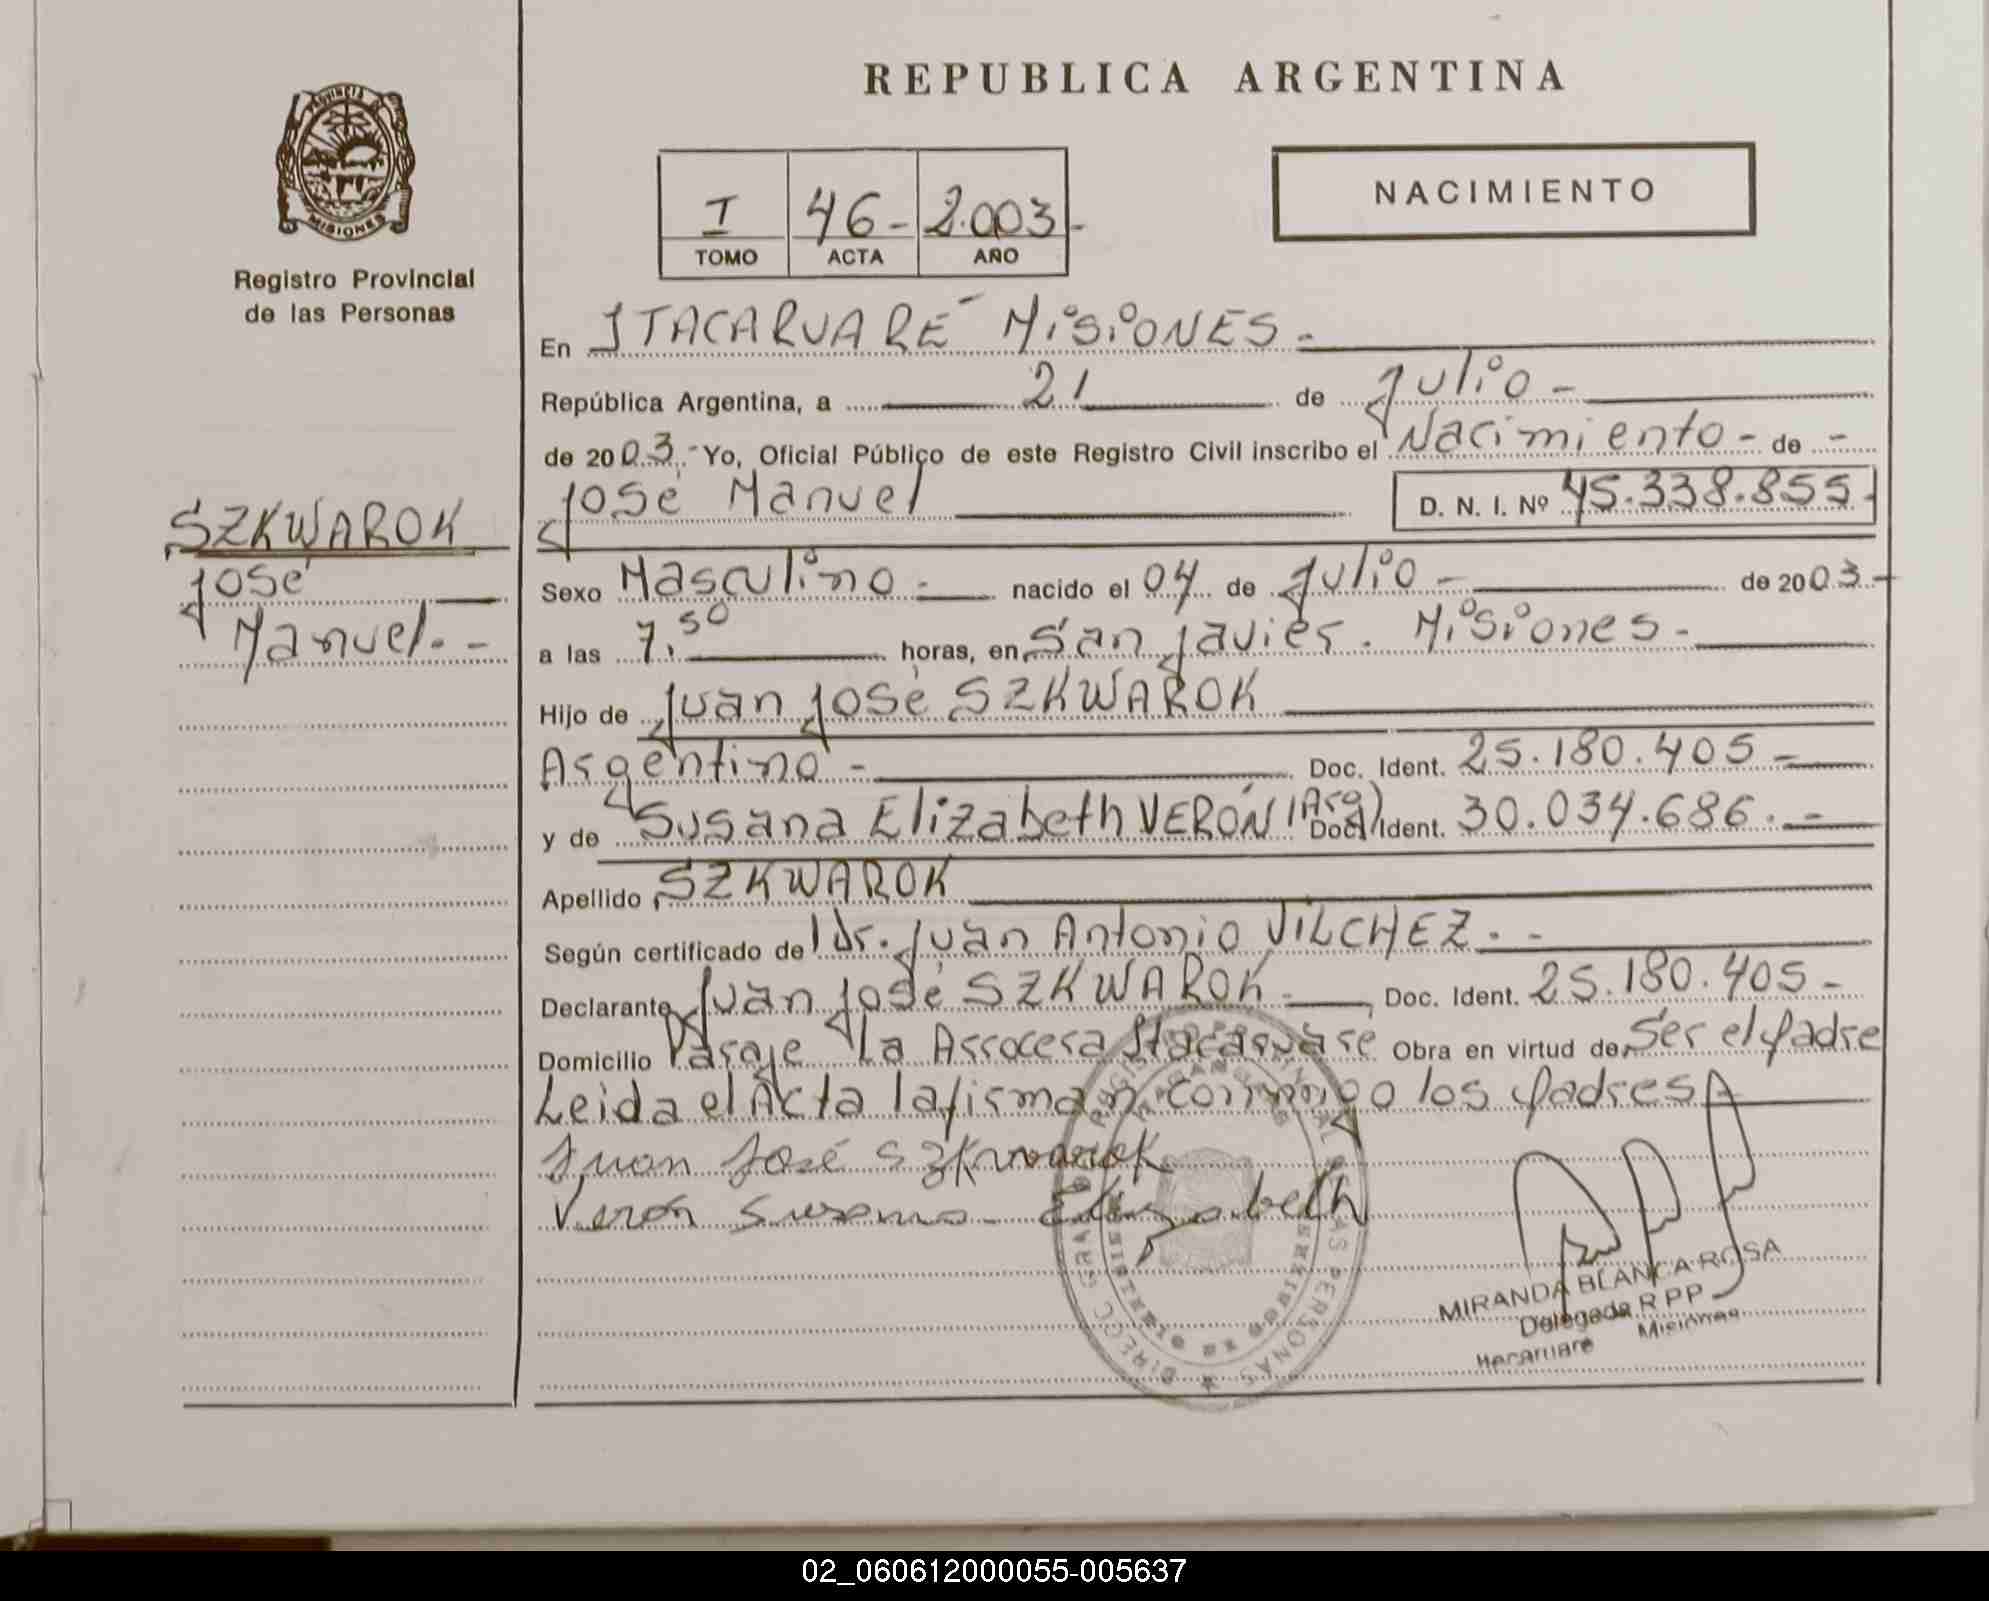 REPUBLICA ARGENTINA
PROVINCIA DE MISIONES
Registro Provincial
de las Personas
I 46- 2.003-
TOMO ACTA AÑO
NACIMIENTO
En ITACARUARÉ MisiONES-
República Argentina, a 21 de Julio-
de 2003.- Yo, Oficial Público de este Registro Civil inscribo el Nacimiento- de -
José Manuel D. N. I. Nº 45.338.855.
SZKWAROK
José
Manuel.-
Sexo Masculino- nacido el 04 de Julio- de 2003.-
a las 7,50 horas, en San Javier. Misiones-
Hijo de Juan José SZKWAROK
Argentino- Doc. Ident. 25.180.405-
y de Susana Elizabeth VERÓN (Arg) Doc. Ident. 30.034.686.-
Apellido SZKWAROK
Según certificado de Dr. Juan Antonio VILCHEZ.-
Declarante Juan José SZKWAROK- Doc. Ident. 25.180.405-
Domicilio Paraje La Arrocera Itacaruare Obra en virtud de Ser el padre
Leida el Acta la firman conmigo los padres
Juan José Szkwarok
Verón Susana Elizabeth
MIRANDA BLANCA ROSA
Delegada R P P
Itacaruare Misiones
02_060612000055-005637